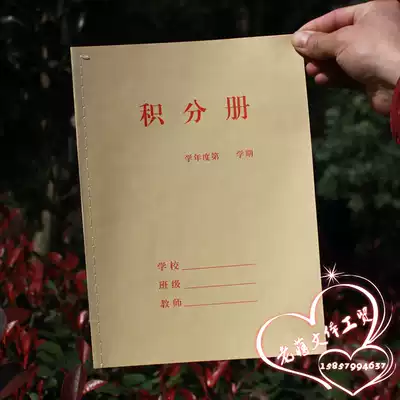 积分册
学年度第 学期
学校
班级
教师
老蒋文体工贸
15857994637